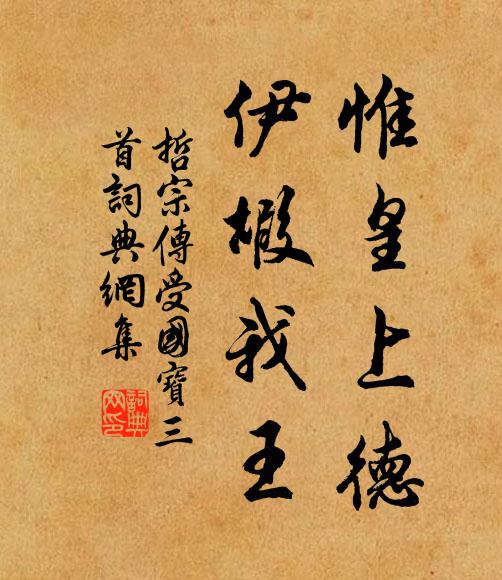 惟皇上德
伊嘏我王
哲宗傳受國寶三
首詞典網集
詞典
网印